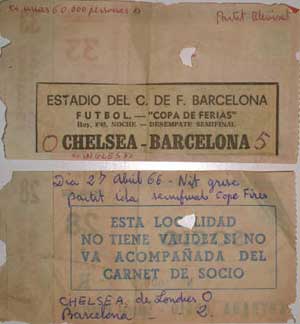 unas 60.000 personas
Partit
33
ESTADIO DEL C. DE F. BARCELONA
FUTBOL. — "COPA DE FERIAS"
Hoy, 9'45, NOCHE - DESEMPATE SEMIFINAL
0 CHELSEA - BARCELONA 5
INGLESES
Dia 27 Abril 66 - Nit grisa
partit ida semifinal Copa Fires
ESTA LOCALIDAD
NO TIENE VALIDEZ SI NO
VA ACOMPAÑADA DEL
CARNET DE SOCIO
CHELSEA, de Londres 0
Barcelona 2.